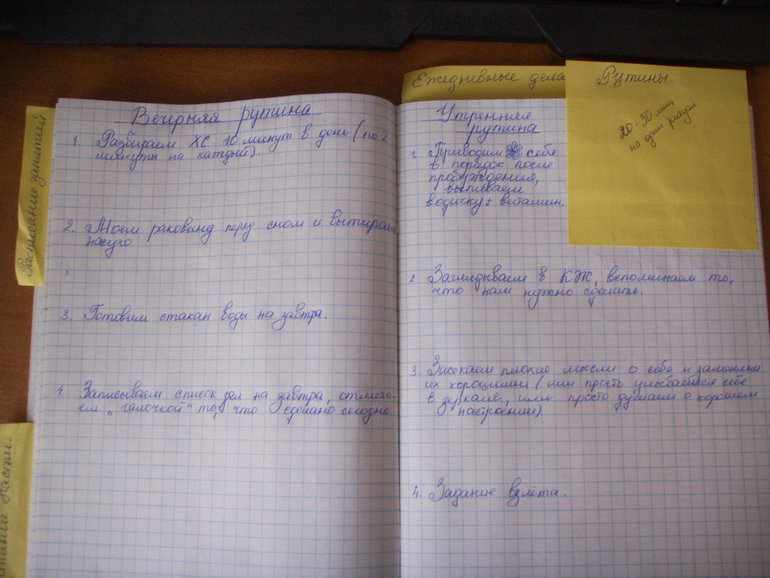 Ежедневные дела
Рутины.
20-30 мин
на один раздел
Расписание занятий
Вечерняя рутина
1. Разбираем ХС 10 минут в день (по 2
минуты на каждый).
2. Моем раковину перед сном и вытираем
насухо
3. Готовим стакан воды на завтра.
4. Записываем список дел на завтра, отмеча-
ем „галочкой" то, что сделано сегодня.
Утренняя
рутина
1. Приводим себя
в порядок после
пробуждения,
выпиваем
водичку + витамин.
2. Заглядываем в КЖ, вспоминаем то,
что нам нужно сделать.
3. Засекаем плохие мысли о себе и заменяем
их хорошими (или просто улыбаемся себе
в зеркале, или просто думаем о хорошем
настроении)
4. Задание взлёта.